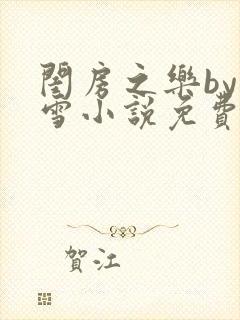 閨房之樂by
雪小說免費
賀江